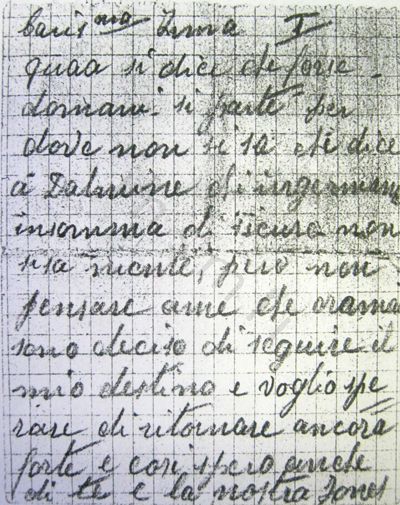 Caris ma Irma I
quaa si dice che forse
domani si parte per
dove non si sà chi dice
à Dalmine chi ingermani
insomma di sicuro non
si sa niente, però non
pensare ame che oramai
sono deciso di seguire il
mio destino e voglio spe
rare di ritornare ancora
forte e cosi spero anche
di te e la nostra